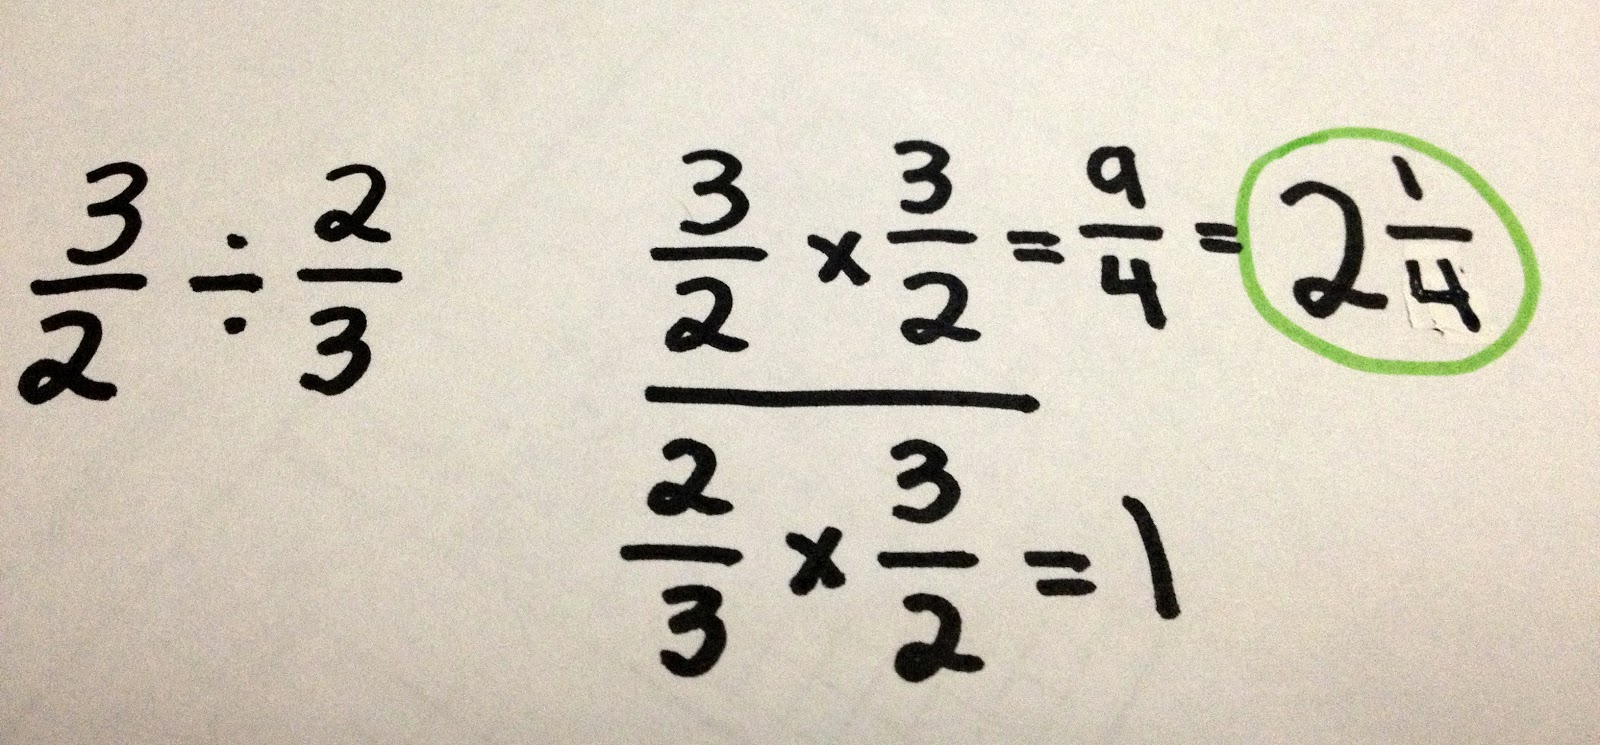 3/2 ÷ 2/3
3/2 x 3/2 = 9/4 = 2 1/4
2/3 x 3/2 = 1